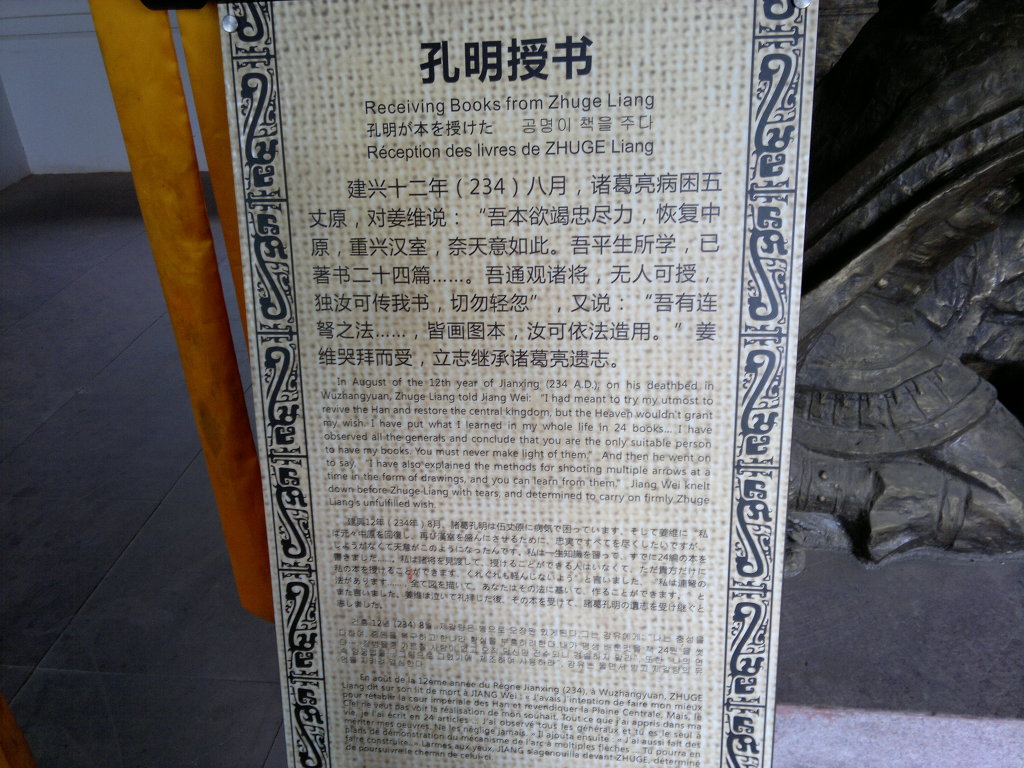 孔明授书
Receiving Books from Zhuge Liang
孔明が本を授けた 공명이 책을 주다
Réception des livres de ZHUGE Liang
建兴十二年（234）八月，诸葛亮病困五
丈原，对姜维说：“吾本欲竭忠尽力，恢复中
原，重兴汉室，奈天意如此。吾平生所学，已
著书二十四篇……。吾通观诸将，无人可授，
独汝可传我书，切勿轻忽”，又说：“吾有连
弩之法……，皆画图本，汝可依法造用。”姜
维哭拜而受，立志继承诸葛亮遗志。
In August of the 12th year of Jianxing (234 A.D.), on his deathbed in
Wuzhangyuan, Zhuge Liang told Jiang Wei: “I had meant to try my utmost to
revive the Han and restore the central kingdom, but the Heaven wouldn't grant
my wish. I have put what I learned in my whole life in 24 books... I have
observed all the generals and conclude that you are the only suitable person
to have my books. You must never make light of them.” And then he went on
to say, “I have also explained the methods for shooting multiple arrows at a
time in the form of drawings, and you can learn from them.” Jiang Wei knelt
down before Zhuge Liang with tears, and determined to carry on firmly Zhuge
Liang's unfulfilled wish.
建興12年（234年）8月、諸葛孔明は伍丈原に病気で困っています。そして姜維に“私
は元々中原を回復し、再び漢室を盛んにさせるために、忠実ですべてを尽くしたいですが、
しようがなくて天意がこのようになったんです。私は一生知識を習って、すでに24編の本を
書きました……。私は諸将を見渡して、授けることができる人はいなくて、ただ貴方だけに
私の本を授けることができます。くれぐれも軽んじないよう”と言いました。“私は連弩の
法があります……、全て図を描いて、あなたはその法に基いて、作ることができます。”と
また言いました。姜維は泣いて礼拝した後、その本を受けて、諸葛孔明の遺志を受け継ぐと
志しました。
건흥 12년 (234) 8월, 제갈량은
En août de la 12ème année du Règne Jianxing (234), à Wuzhangyuan, ZHUGE
Liang dit sur son lit de mort à JIANG Wei : « J'avais l'intention de faire mon mieux
pour rétablir la cour impériale des Han et revendiquer la Plaine Centrale. Mais, le
Ciel ne veut pas voir la réalisation de mon souhait. Tout ce que j'ai appris dans ma
vie, je l'ai écrit en 24 articles ... J'ai observé tous les généraux et tu es le seul à
mériter mes oeuvres. Ne les néglige jamais. » Il ajouta ensuite : « J'ai aussi fait des
plans de démonstration du mécanisme de l'arc à multiples flèches ... Tu pourra en
faire construire. » Larmes aux yeux, JIANG s'agenouilla devant ZHUGE, déterminé
de poursuivre le chemin de celui-ci.